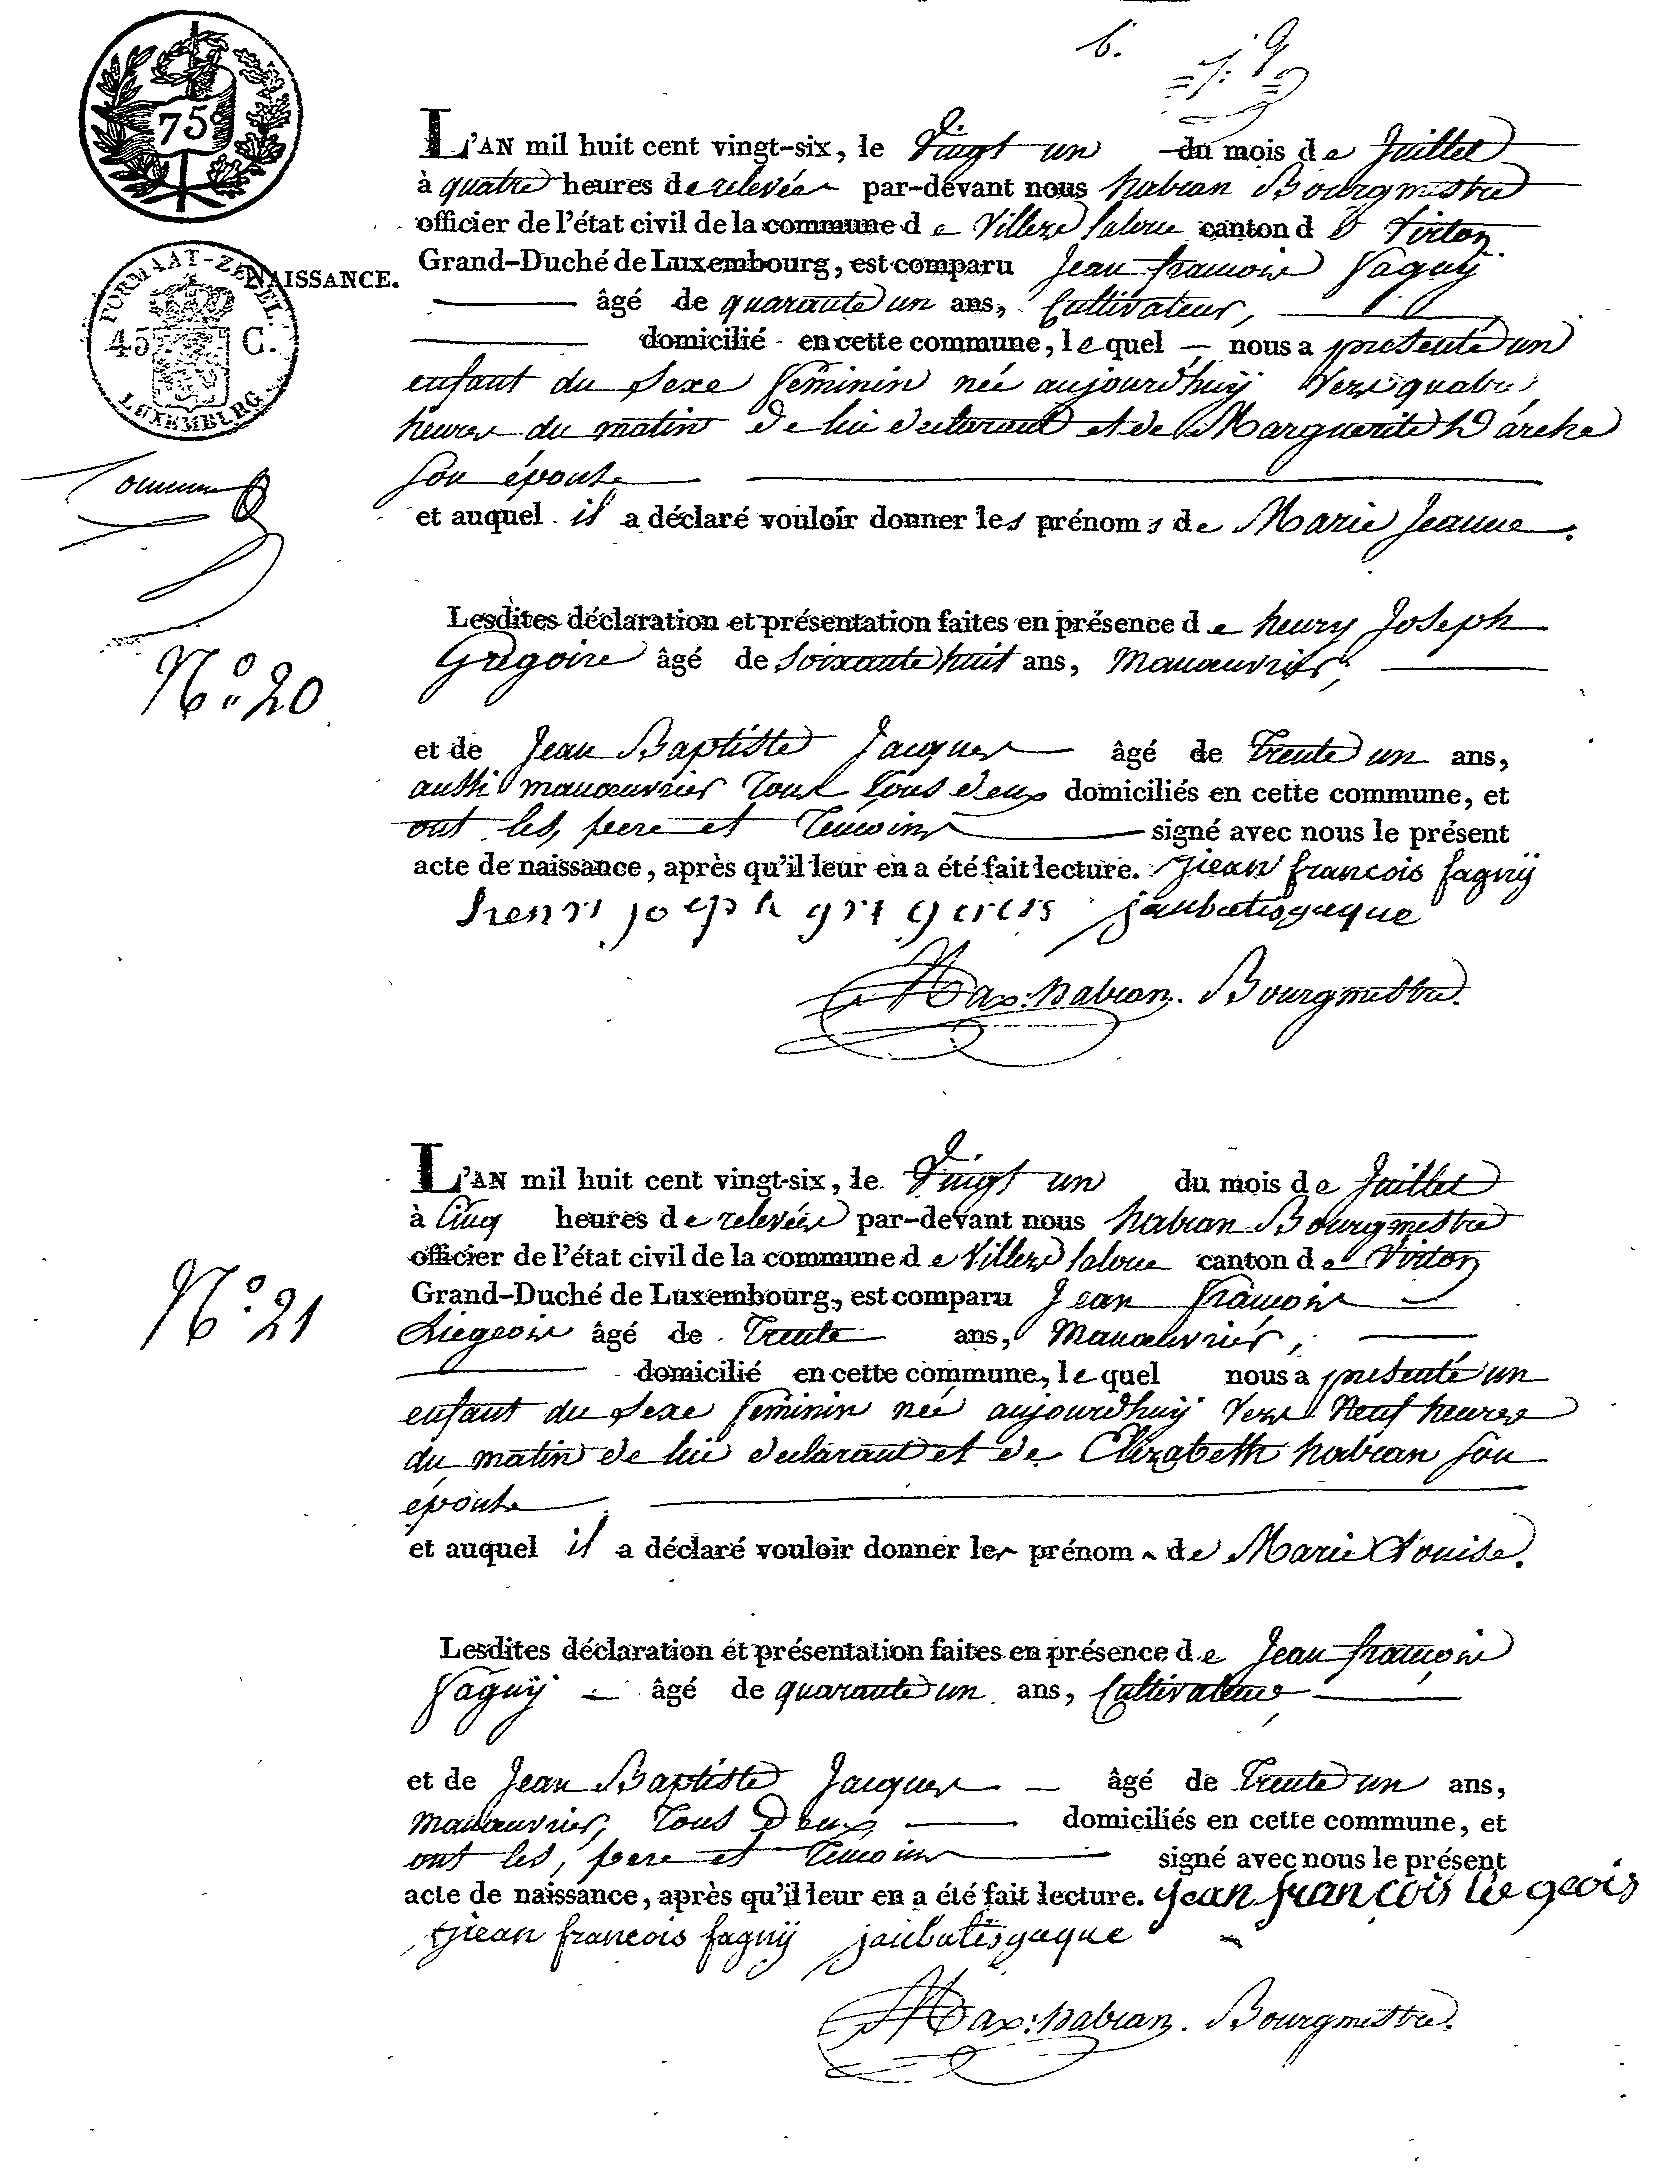 6.
75
FORMAAT-ZEGEL.
45 C.
LUXEMBURG.
NAISSANCE.
L'AN mil huit cent vingt-six, le Vingt un du mois de Juillet
à quatre heures de relevée par-devant nous habran Bourgmestre
officier de l'état civil de la commune de Villers laloue canton d Virton
Grand-Duché de Luxembourg, est comparu Jean françois fagny
âgé de quarante un ans, Cultivateur,
domicilié en cette commune, lequel nous a presenté un
enfant du sexe feminin née aujourd'huy vers quatre
heures du matin de lui declarant et de Marguerite
son épouse
et auquel il a déclaré vouloir donner les prénoms de Marie Jeanne.
N.° 20
Lesdites déclaration et présentation faites en présence de henry Joseph
Gregoire âgé de soixante huit ans, Manœuvrier,
et de Jean Baptiste Jacques âgé de trente un ans,
aussi manœuvrier tous deux domiciliés en cette commune, et
ont les, pere et temoins signé avec nous le présent
acte de naissance, après qu'il leur en a été fait lecture. jiean francois fagnij
henri joeph jaubatisgaque
Max: habran. Bourgmestre.
L'AN mil huit cent vingt-six, le Vingt un du mois de Juillet
à Cinq heures de relevée par-devant nous habran Bourgmestre
officier de l'état civil de la commune de Villers laloue canton de Virton
N.° 21
Grand-Duché de Luxembourg, est comparu Jean françois
Liegeois âgé de trente ans, Manœuvrier,
domicilié en cette commune, lequel nous a presenté un
enfant du sexe feminin née aujourd'huy vers Neuf heures
du matin de lui declarant et de Elizabeth habran son
épouse
et auquel il a déclaré vouloir donner les prénom de Marie Louise.
Lesdites déclaration et présentation faites en présence de Jean françois
fagny âgé de quarante un ans, Cultivateur
et de Jean Baptiste Jacques âgé de trente un ans,
manœuvrier, tous Deux domiciliés en cette commune, et
ont les, pere et temoins signé avec nous le présent
acte de naissance, après qu'il leur en a été fait lecture. jean françois liegeois
jiean francois fagnij jaubatisgaque
Max: habran. Bourgmestre.